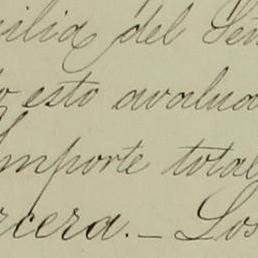 ilia del Señ
esto avalua
Importe total
rcera.— Los